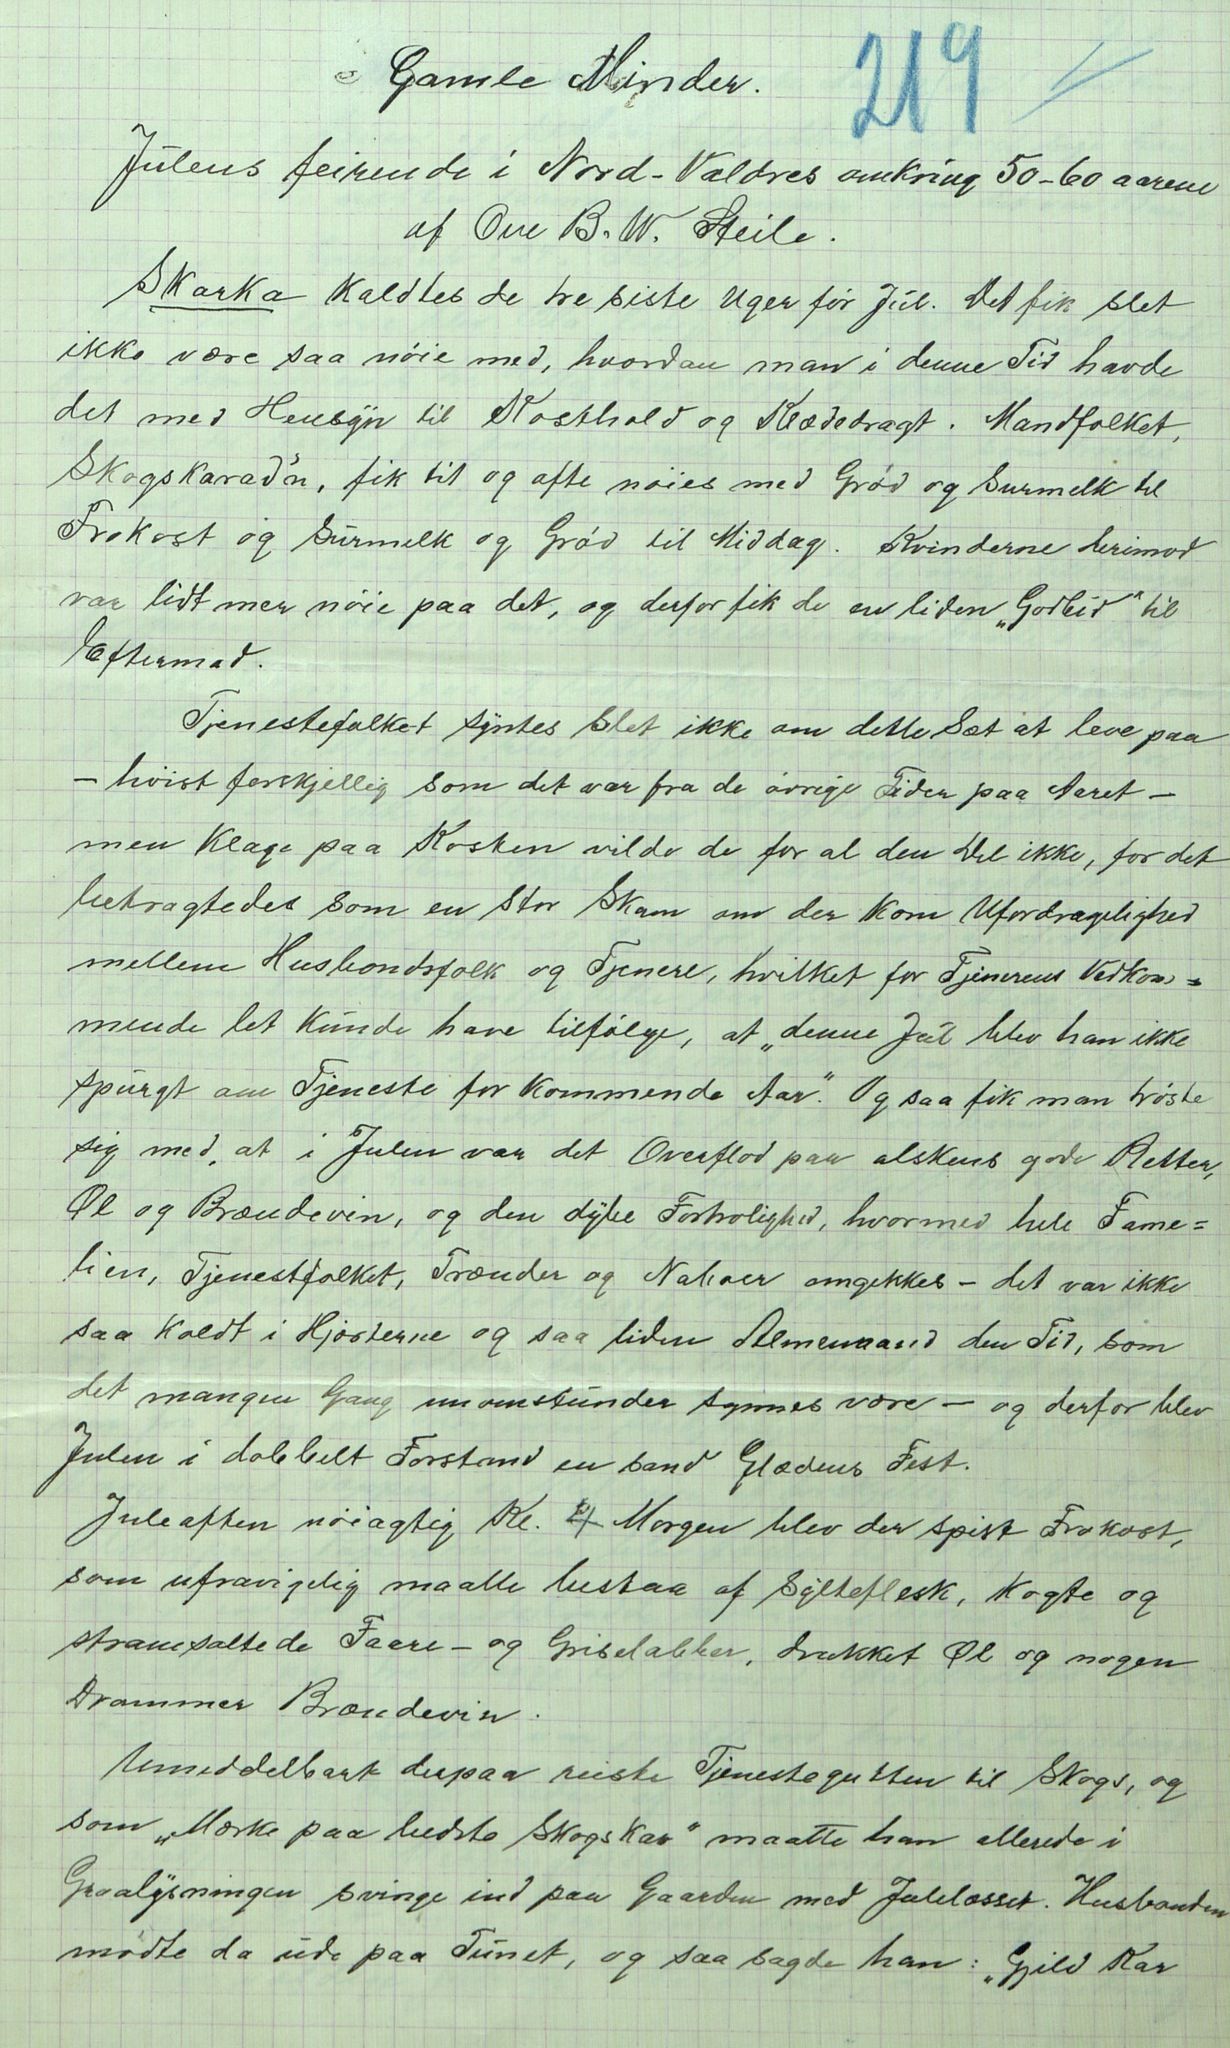 Gamle Minder.
219
Julens feirende i Nord-Valdres omkring 50-60 aarene
af Ove B. W. Steile.
Skarka kaldtes de tre siste Uger før Jul. Det fik slet
ikke være saa nøie med, hvordan man i denne Tid havde
det med Hensyn til Kosthold og Klædedragt. Mandfolket,
Skogskarad'n, fik tit og ofte nøies med Grød og Surmelk til
Frokost og Surmelk og Grød til Middag. Kvinderne derimod
var lidt mer nøie paa det, og derfor fik de en liden „Godbid" til
Eftermad.
Tjenestefolket syntes slet ikke om dette Sæt at leve paa
- høist forskjellig som det var fra de øvrige Tider paa Aaret -
men klage paa Kosten vilde de for al den Del ikke, for det
betragtedes som en stor Skam om der kom Ufordragelighed
mellem Husbondsfolk og Tjenere, hvilket for Tjenerens Vedkom=
mende let kunde have tilfølge, at „denne Jul blev han ikke
spurgt om Tjeneste for kommende Aar". Og saa fik man trøste
sig med, at i Julen var det Overflod paa alskens gode Retter,
Øl og Brændevin, og den dybe Fortrolighed, hvormed hele Fame=
lien, Tjenestfolket, Frænder og Naboer omgekkes - det var ikke
saa koldt i Hjerterne og saa liden Almenaand den Tid, som
det mangen Gang nu omstunder synnes være - og derfor blev
Julen i dobbelt Forstand en sand Glædens Fest.
Juleaften nøiagtig Kl. 4 Morgen blev der spist Frokost,
som ufravigelig maatte bestaa af Sylteflesk, kogte og
stramsaltede Faare- og Griselabber, drukket Øl og nogen
Drammer Brændevin.
Umiddelbart derpaa reiste Tjenestegutten til Skogs, og
som „Mærke paa bedste Skogskar" maatte han allerede i
Graalysningen svinge ind paa Gaarden med Julelasset. Husbonden
mødte da ude paa Tunet, og saa sagde han: „Gjild Kar